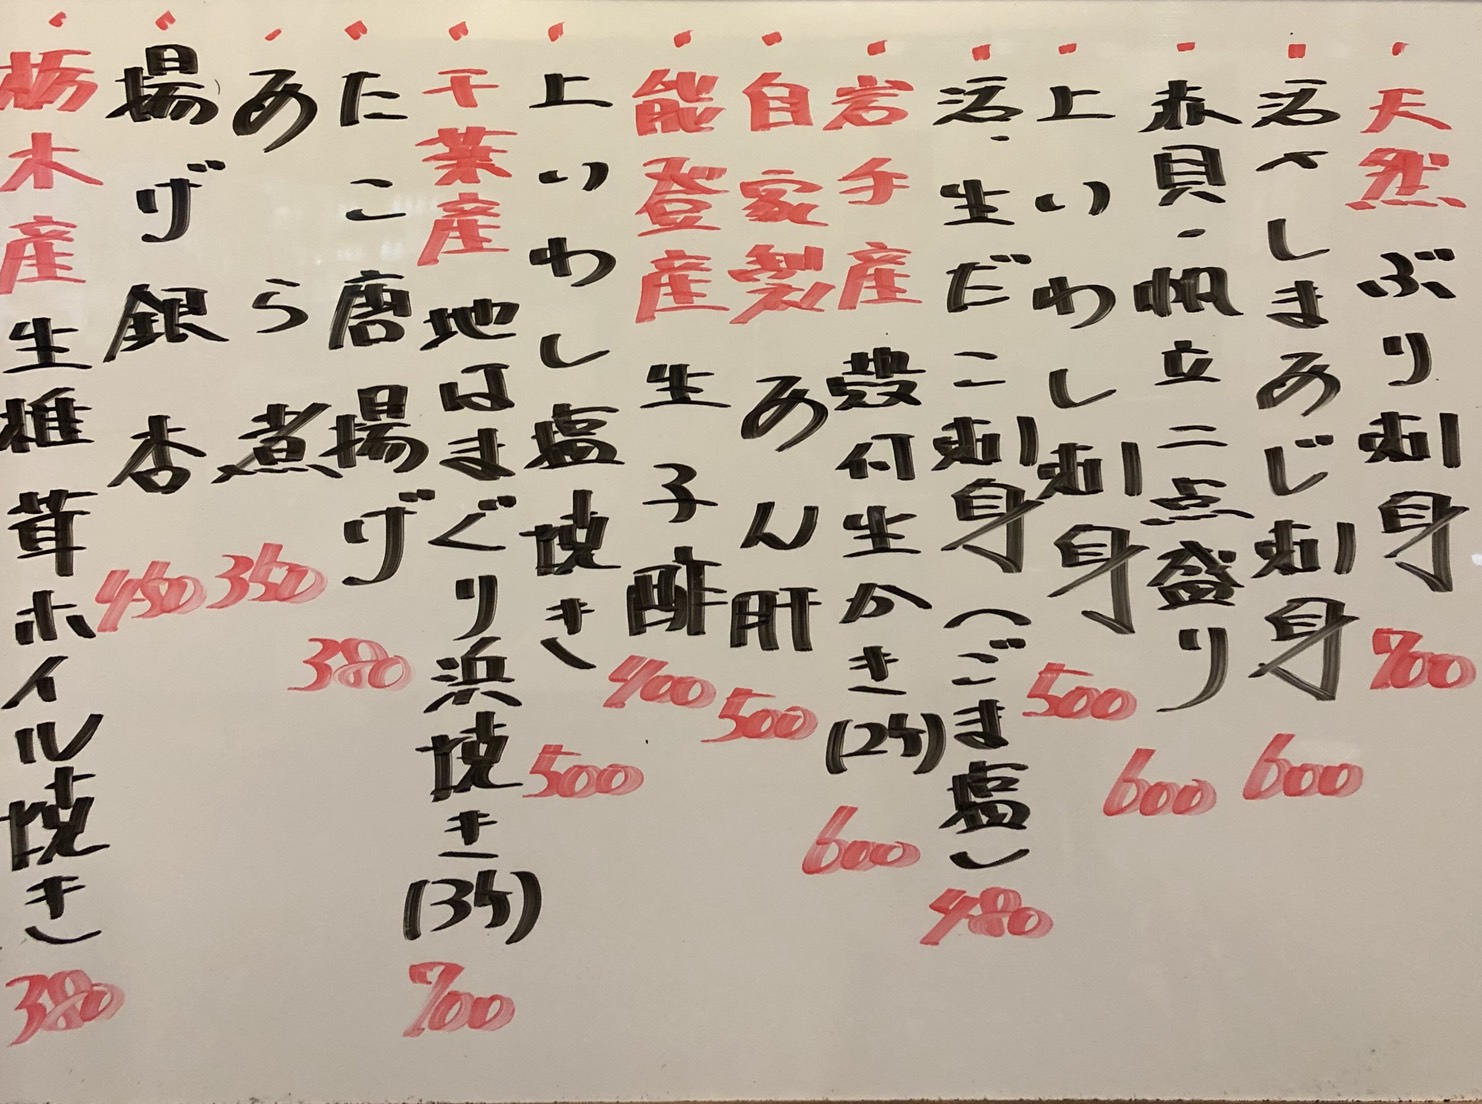 ・天然ぶり刺身 700
・活〆しまあじ刺身 600
・赤貝・帆立二点盛り 600
・上いわし刺身 500
・活・生だこ刺身(ごま塩) 480
・岩手産 殻付生かき(2ケ) 600
・自家製 あん肝 500
・能登産 生子酢 400
・上いわし塩焼き 500
・千葉産 地はまぐり浜焼き(3ケ) 700
・たこ唐揚げ 380
・あら煮 350
・揚げ銀杏 450
・栃木産 生椎茸ホイル焼き 380